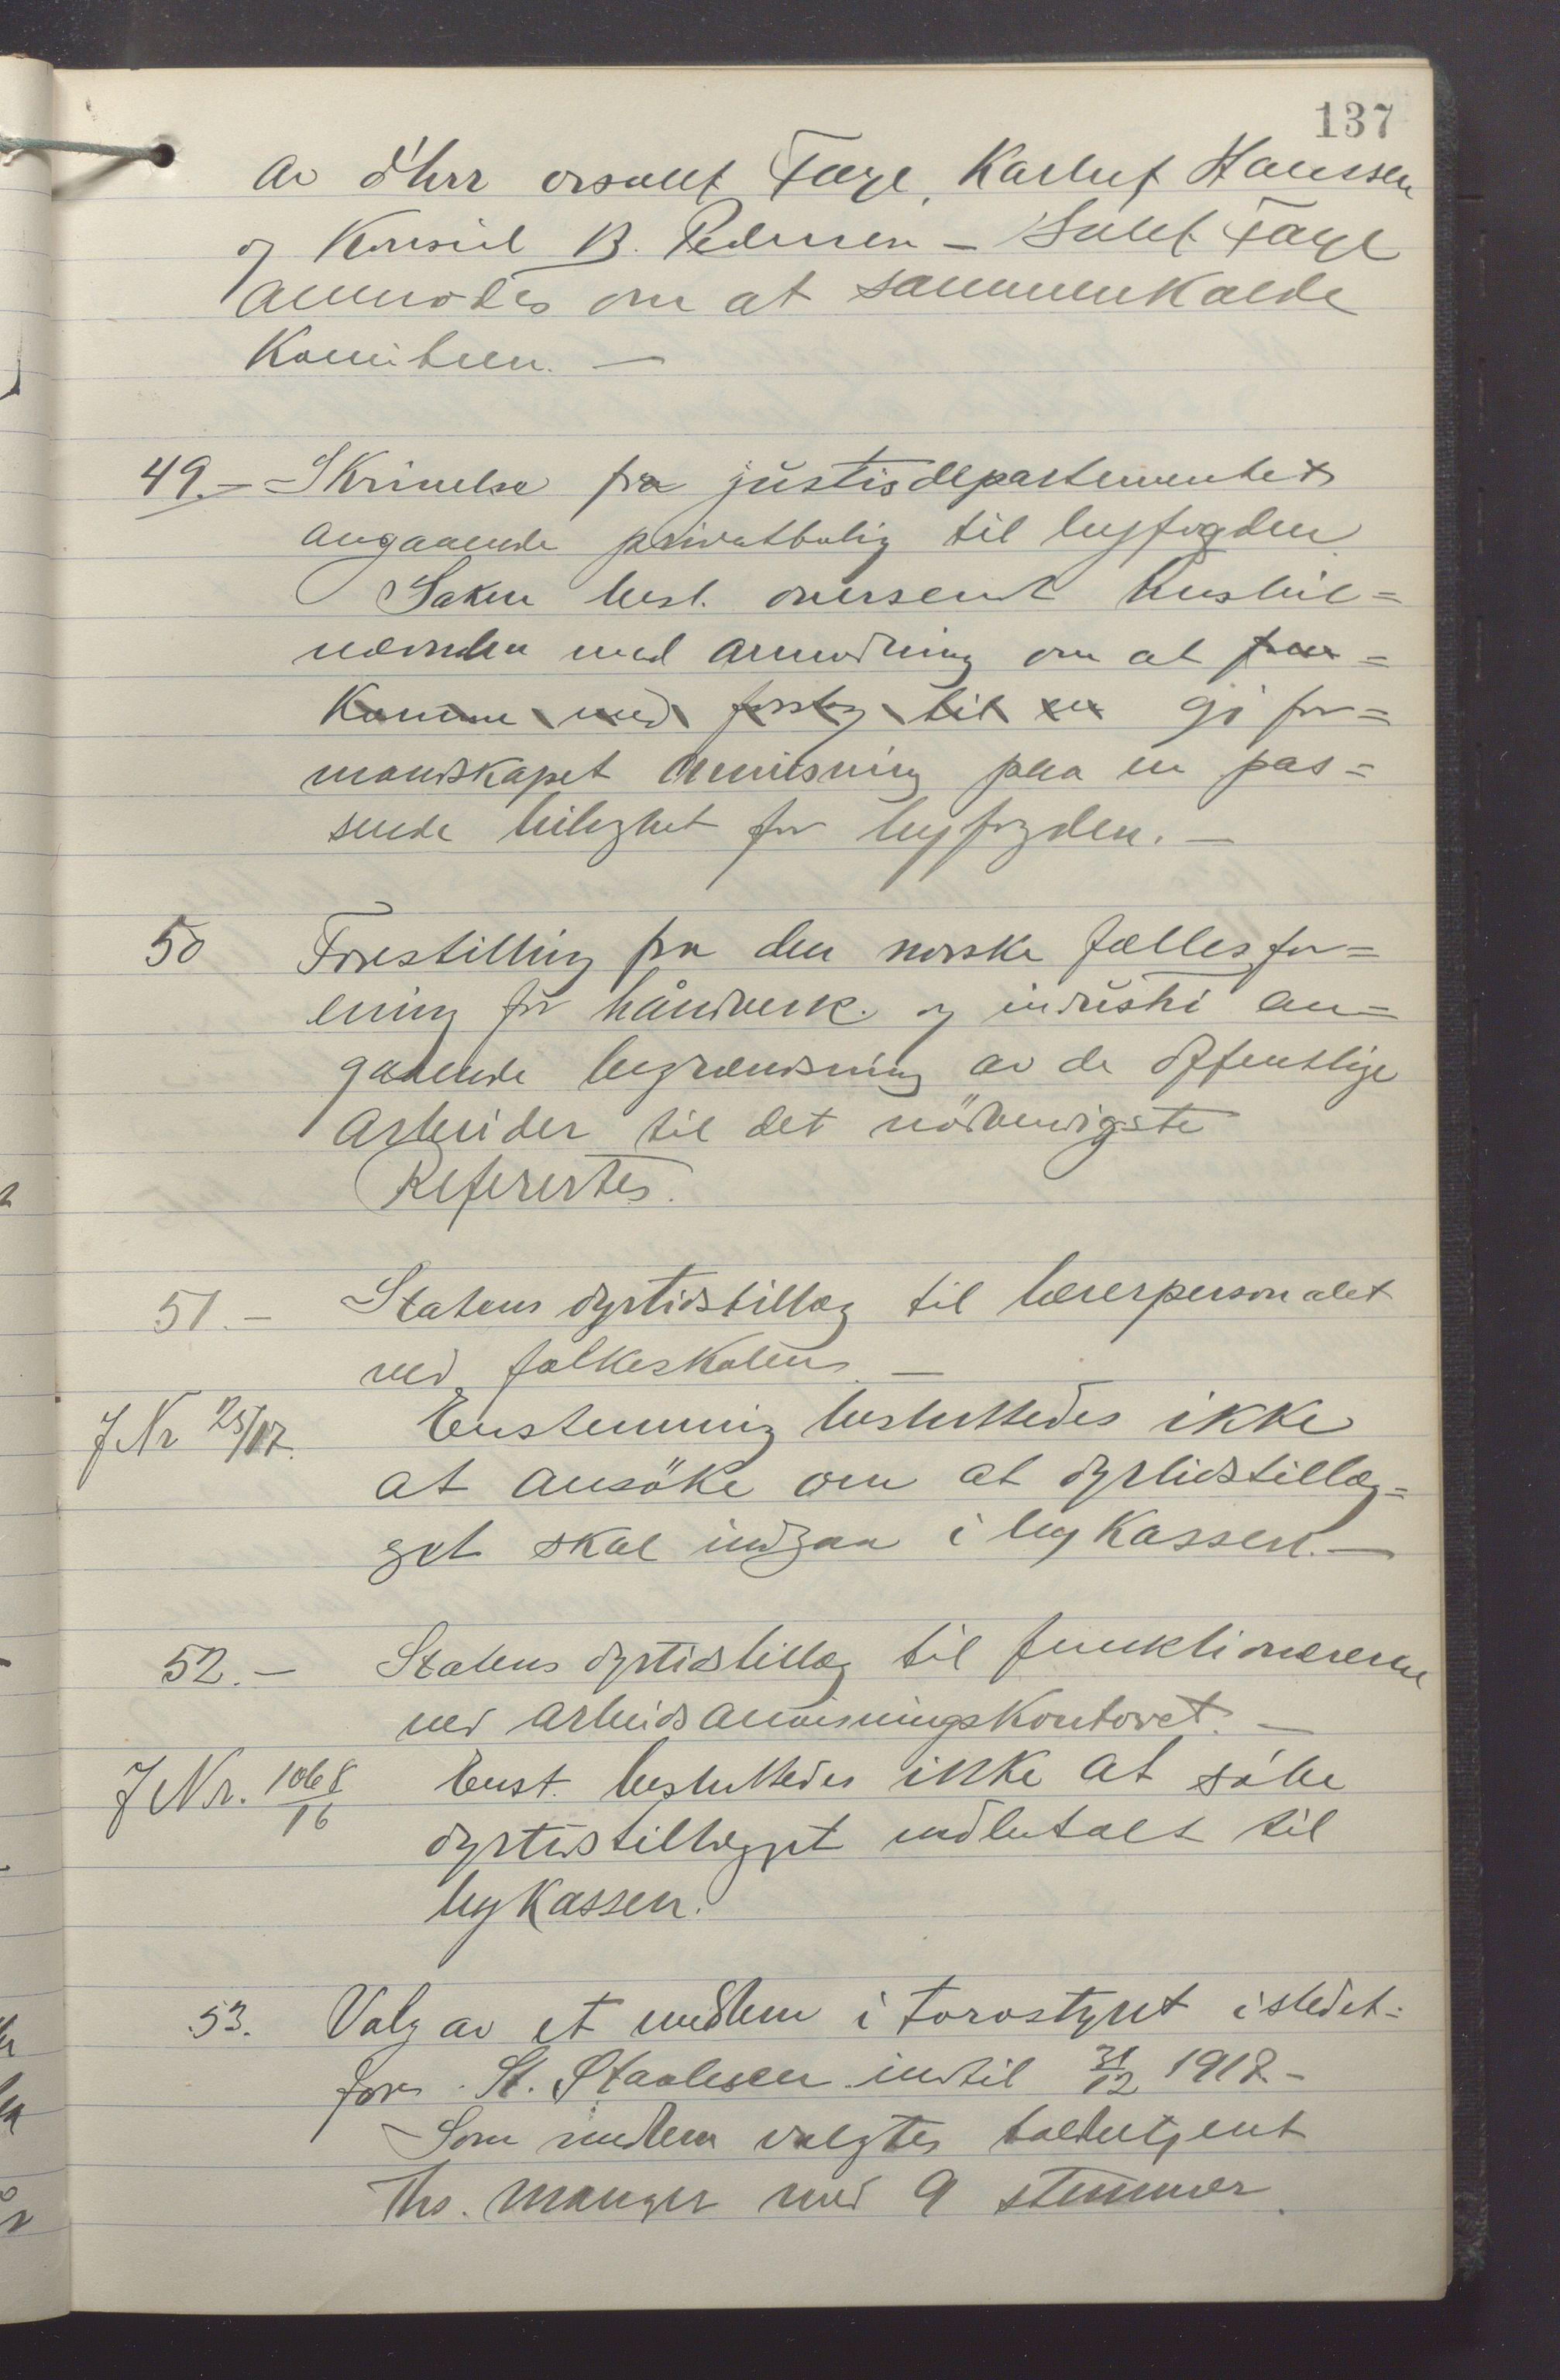 137
av d'hrr Faye, Karluf Hanssen
og Konsul B. Pedersen – Faye
anmodes om at sammenkalde
Komiteen. –
49. – Skrivelse fra justisdepartementet
angaaende privatbolig til byfogden.
Saken besl. oversendt husleie=
nævnden med anmodning om at frem=
komme med forslag til en gi for=
mandskapet anvisning paa en pas=
sende leilighet for byfogden. –
50 Forestilling fra den norske fællesfor=
ening for håndverk. og industri an=
gaaende begrændsning av de offentlige
arbeider til det nödvendigste
Refertes.
51. – Statens dyrtidstillæg til lærerpersonalet
ved folkeskolen. –
J Nr 25/17. Enstemmig besluttedes ikke
at ansöke om at dyrtidstillæg=
get skal indgaa i bykassen. –
52. – Statens dyrtidstillæg til funktionærerne
ved arbeidsanvisningskontoret. –
J Nr. 1068/16 Enst. besluttedes ikke at söke
dyrtidstillægget indbetalt til
bykassen.
53. Valg av et medlem i torvstyret istedet=
for St. Staalesen indtil 31/12 1918 –
Som medlem valgtes
Ths. Manger med 9 stemmer.